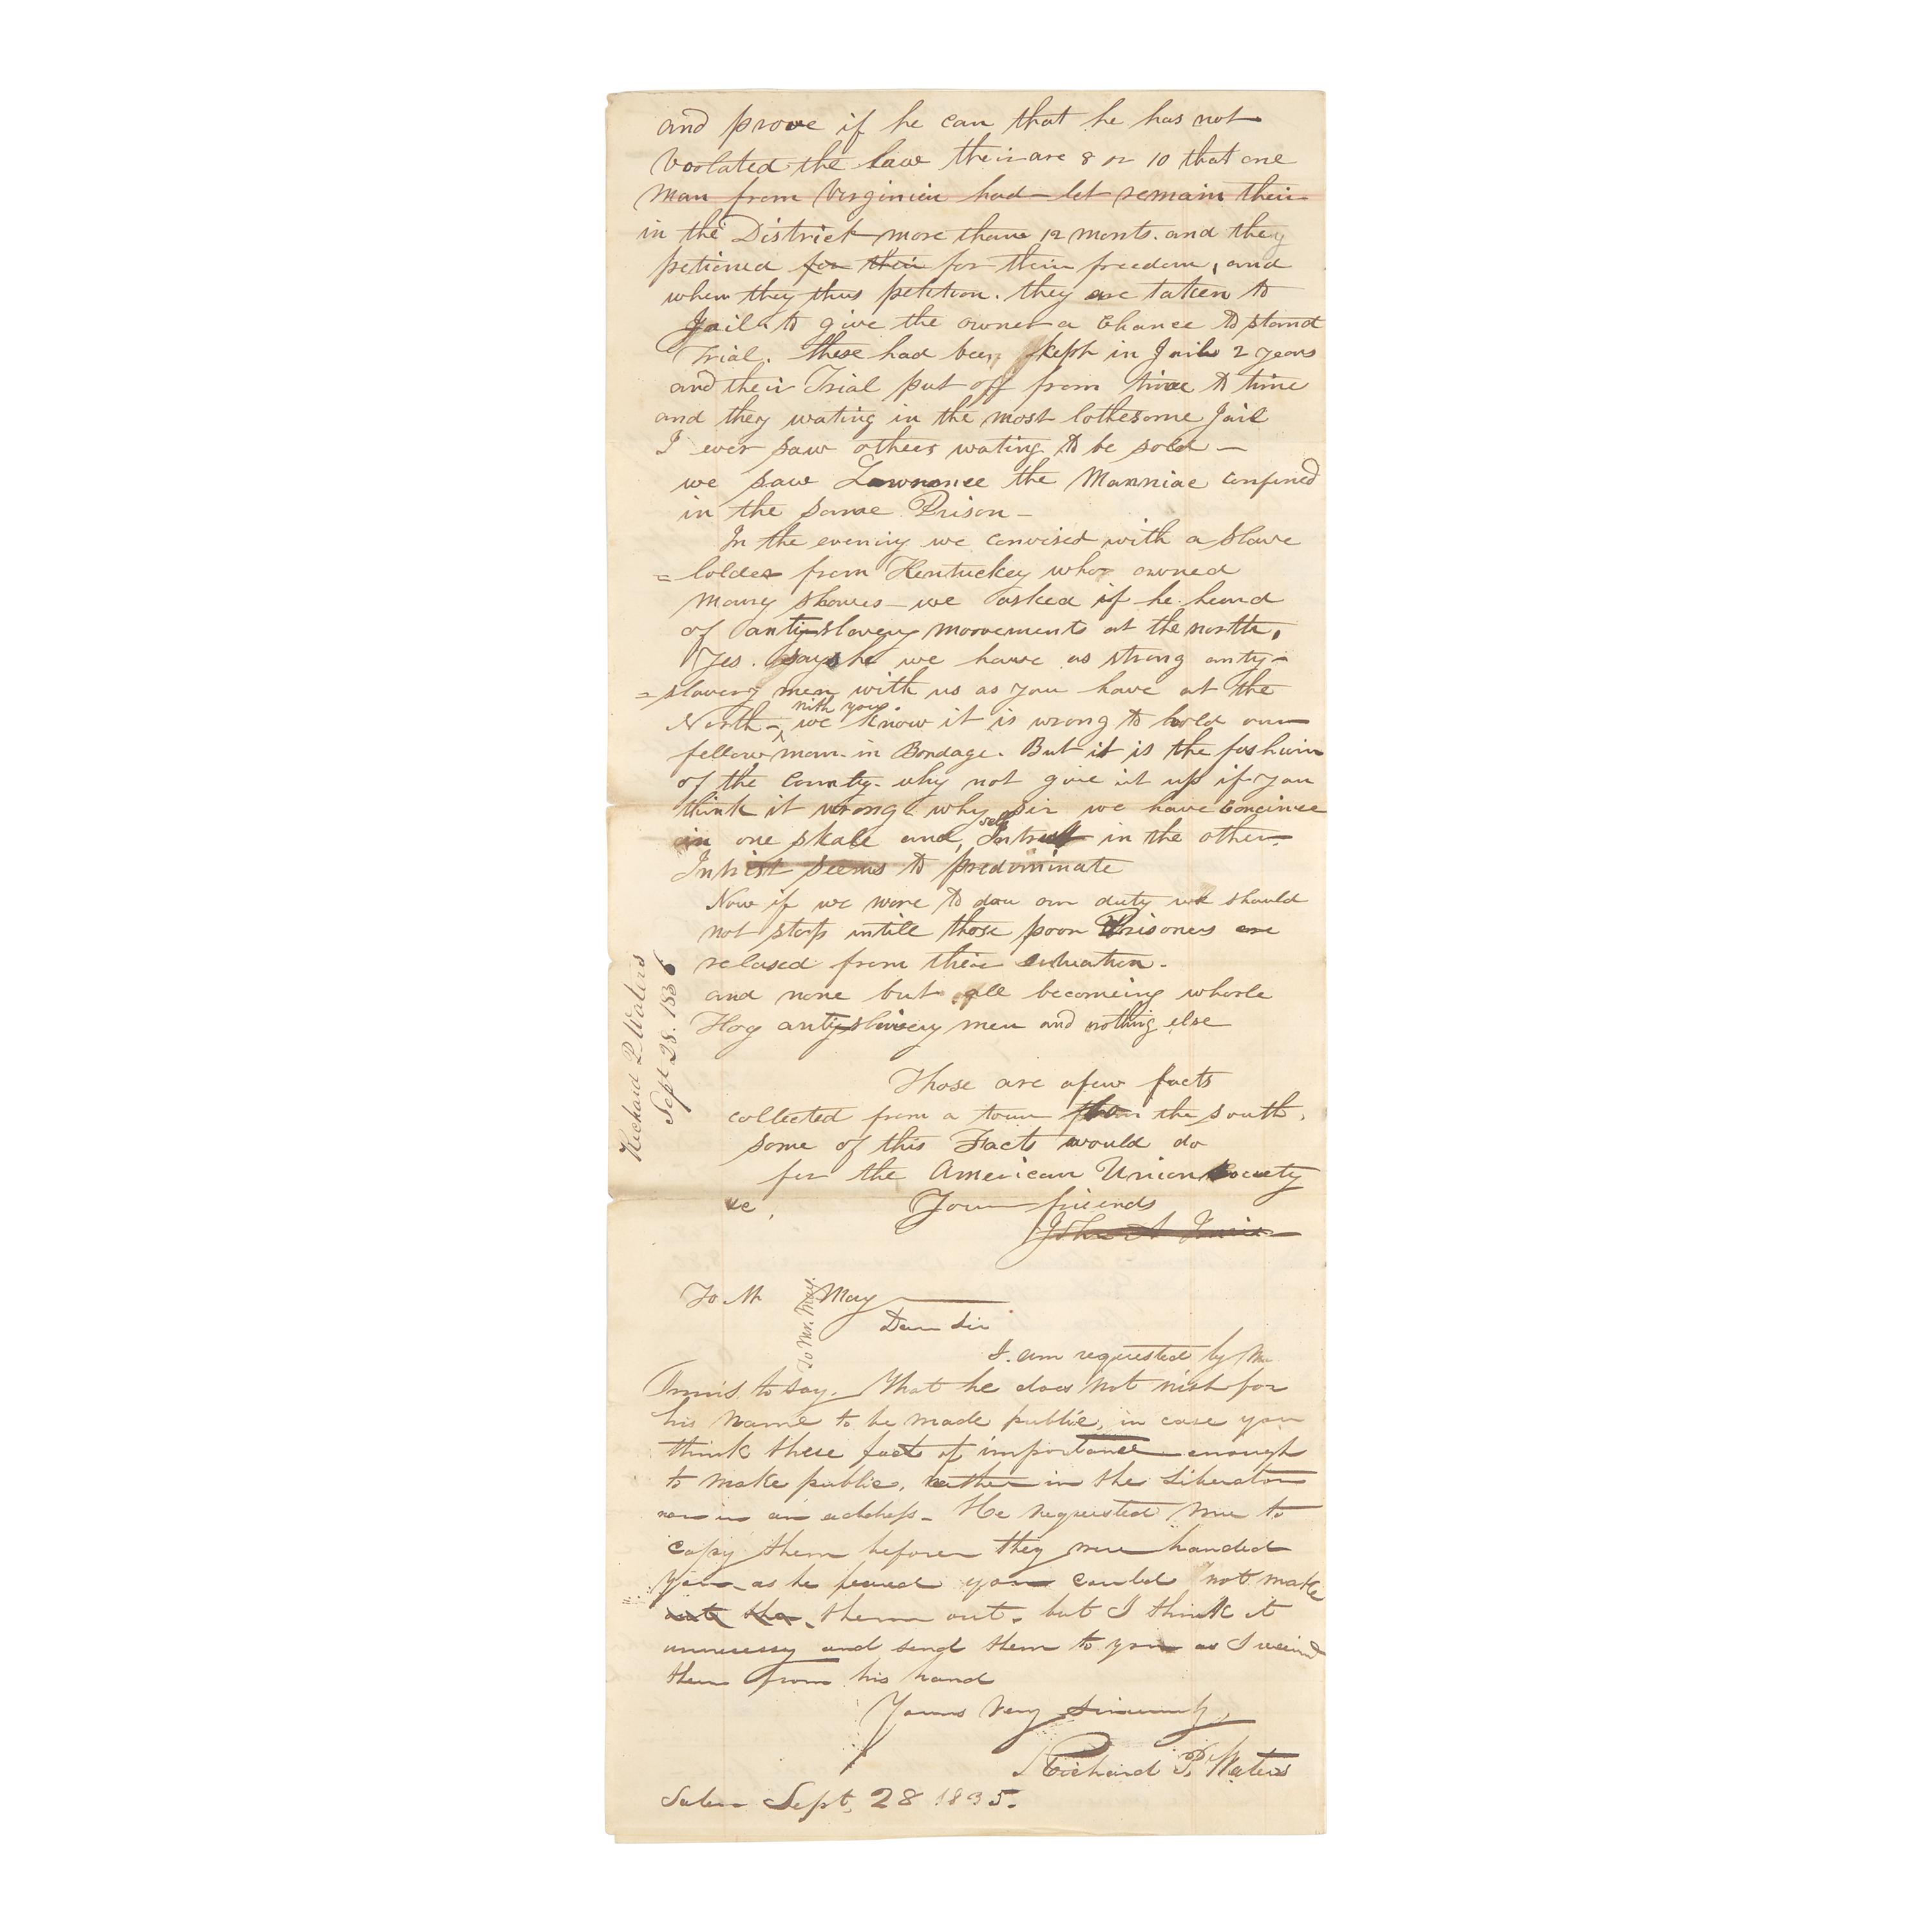 and prove if he can that he has not
voolated the law their are 8 or 10 that one
man from Virginieu had let remain their
in the District more than 12 monts. and they
petioned for their for their freedom, and
when they thus petition. they are taken to
Jail to give the owner a Chance to stand
Trial. these had been kept in Jail 2 years
and their Trial put off from time to time
and they wating in the most lothesome Jail
I ever saw others wating to be sold —
we saw Lawrence the Manniac confined
in the same Prison —
In the evening we convised with a slave
= holder from Kentuckey who owned
many slaves — we asked if he heard
of anty-slavery moovements at the north,
Yes. says he we have as strong anty-
= slavery men with us as you have at the
North - we know it is wrong to hold our
with you
fellow man in Bondage. But it is the fashion
of the county - why not give it up if you
think it wrong why sir we have Concince
in one skale and, self Intrest in the other
Intrist seems to predominate
Now if we were to dou our duty we should
not stop untill those poor Prisoners are
relased from their situation.
and none but all becomeing whorle
Hog anty-slavery men and nothing else
Those are a few facts
collected from a tour from the south,
some of this Facts would do
for the American Union Society
&c, Your friends
John A Innis
Richard P Waters
Sept 28. 1836
To Mr May
To Mr. May.
Dear Sir
I am requested by Mr
Innis to say. that he does not wish for
his name to be made public, in case you
think these fact of importance enough
to make public, either in the Liberator
nor in an address - He requested me to
copy them before they were handed
you - as he feared you could not make
out the. them out. but I think it
unnecessy and send them to you as I receivd
them from his hand
Yours Very Sincerely,
Richard P. Waters
Salem Sept, 28 1835.